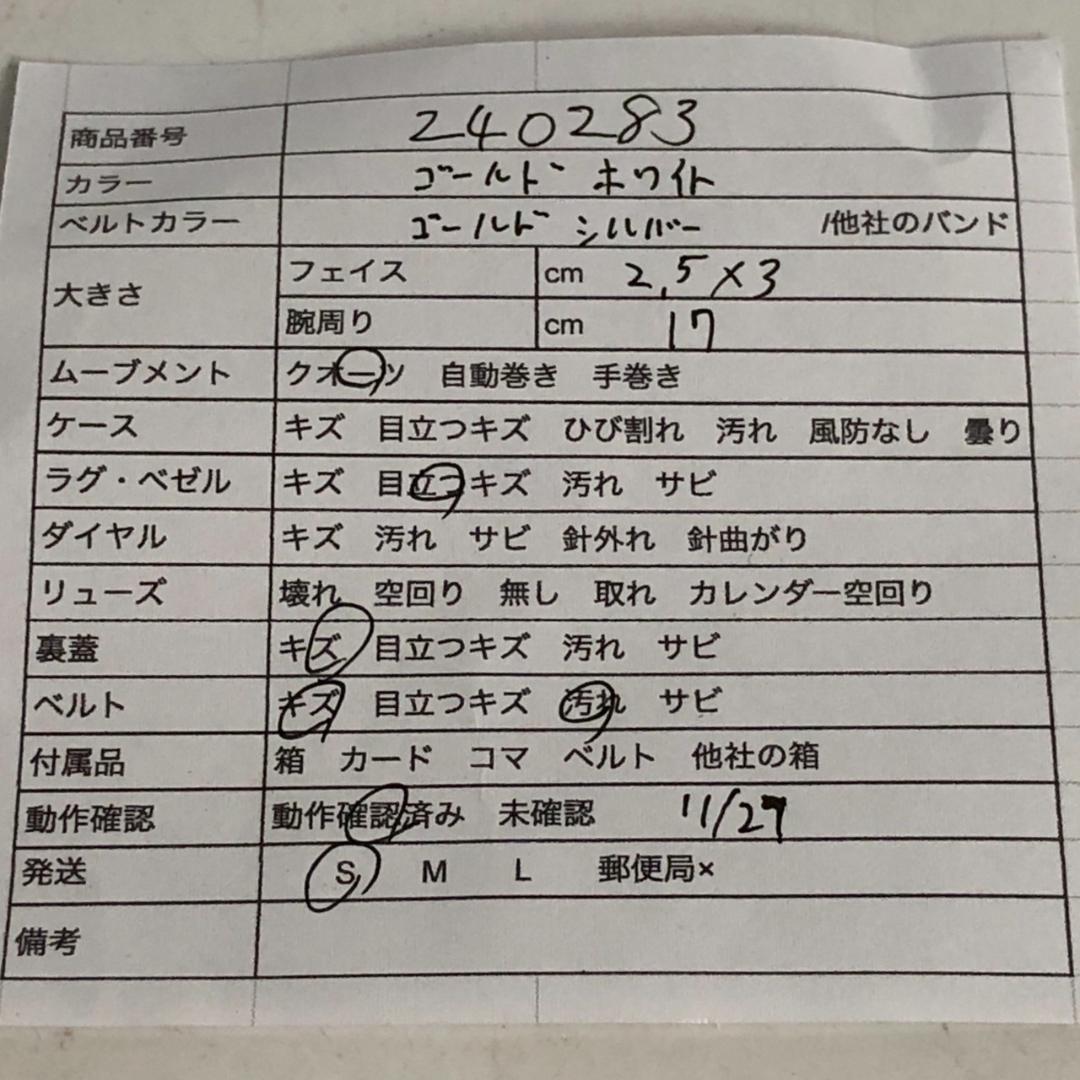 商品番号 240283
カラー ゴールド ホワイト
ベルトカラー ゴールド シルバー /他社のバンド
大きさ フェイス cm 2.5×3
腕周り cm 17
ムーブメント クオーツ 自動巻き 手巻き
ケース キズ 目立つキズ ひび割れ 汚れ 風防なし 曇り
ラグ・ベゼル キズ 目立つキズ 汚れ サビ
ダイヤル キズ 汚れ サビ 針外れ 針曲がり
リューズ 壊れ 空回り 無し 取れ カレンダー空回り
裏蓋 キズ 目立つキズ 汚れ サビ
ベルト キズ 目立つキズ 汚れ サビ
付属品 箱 カード コマ ベルト 他社の箱
動作確認 動作確認済み 未確認 11/27
発送 S M L 郵便局×
備考